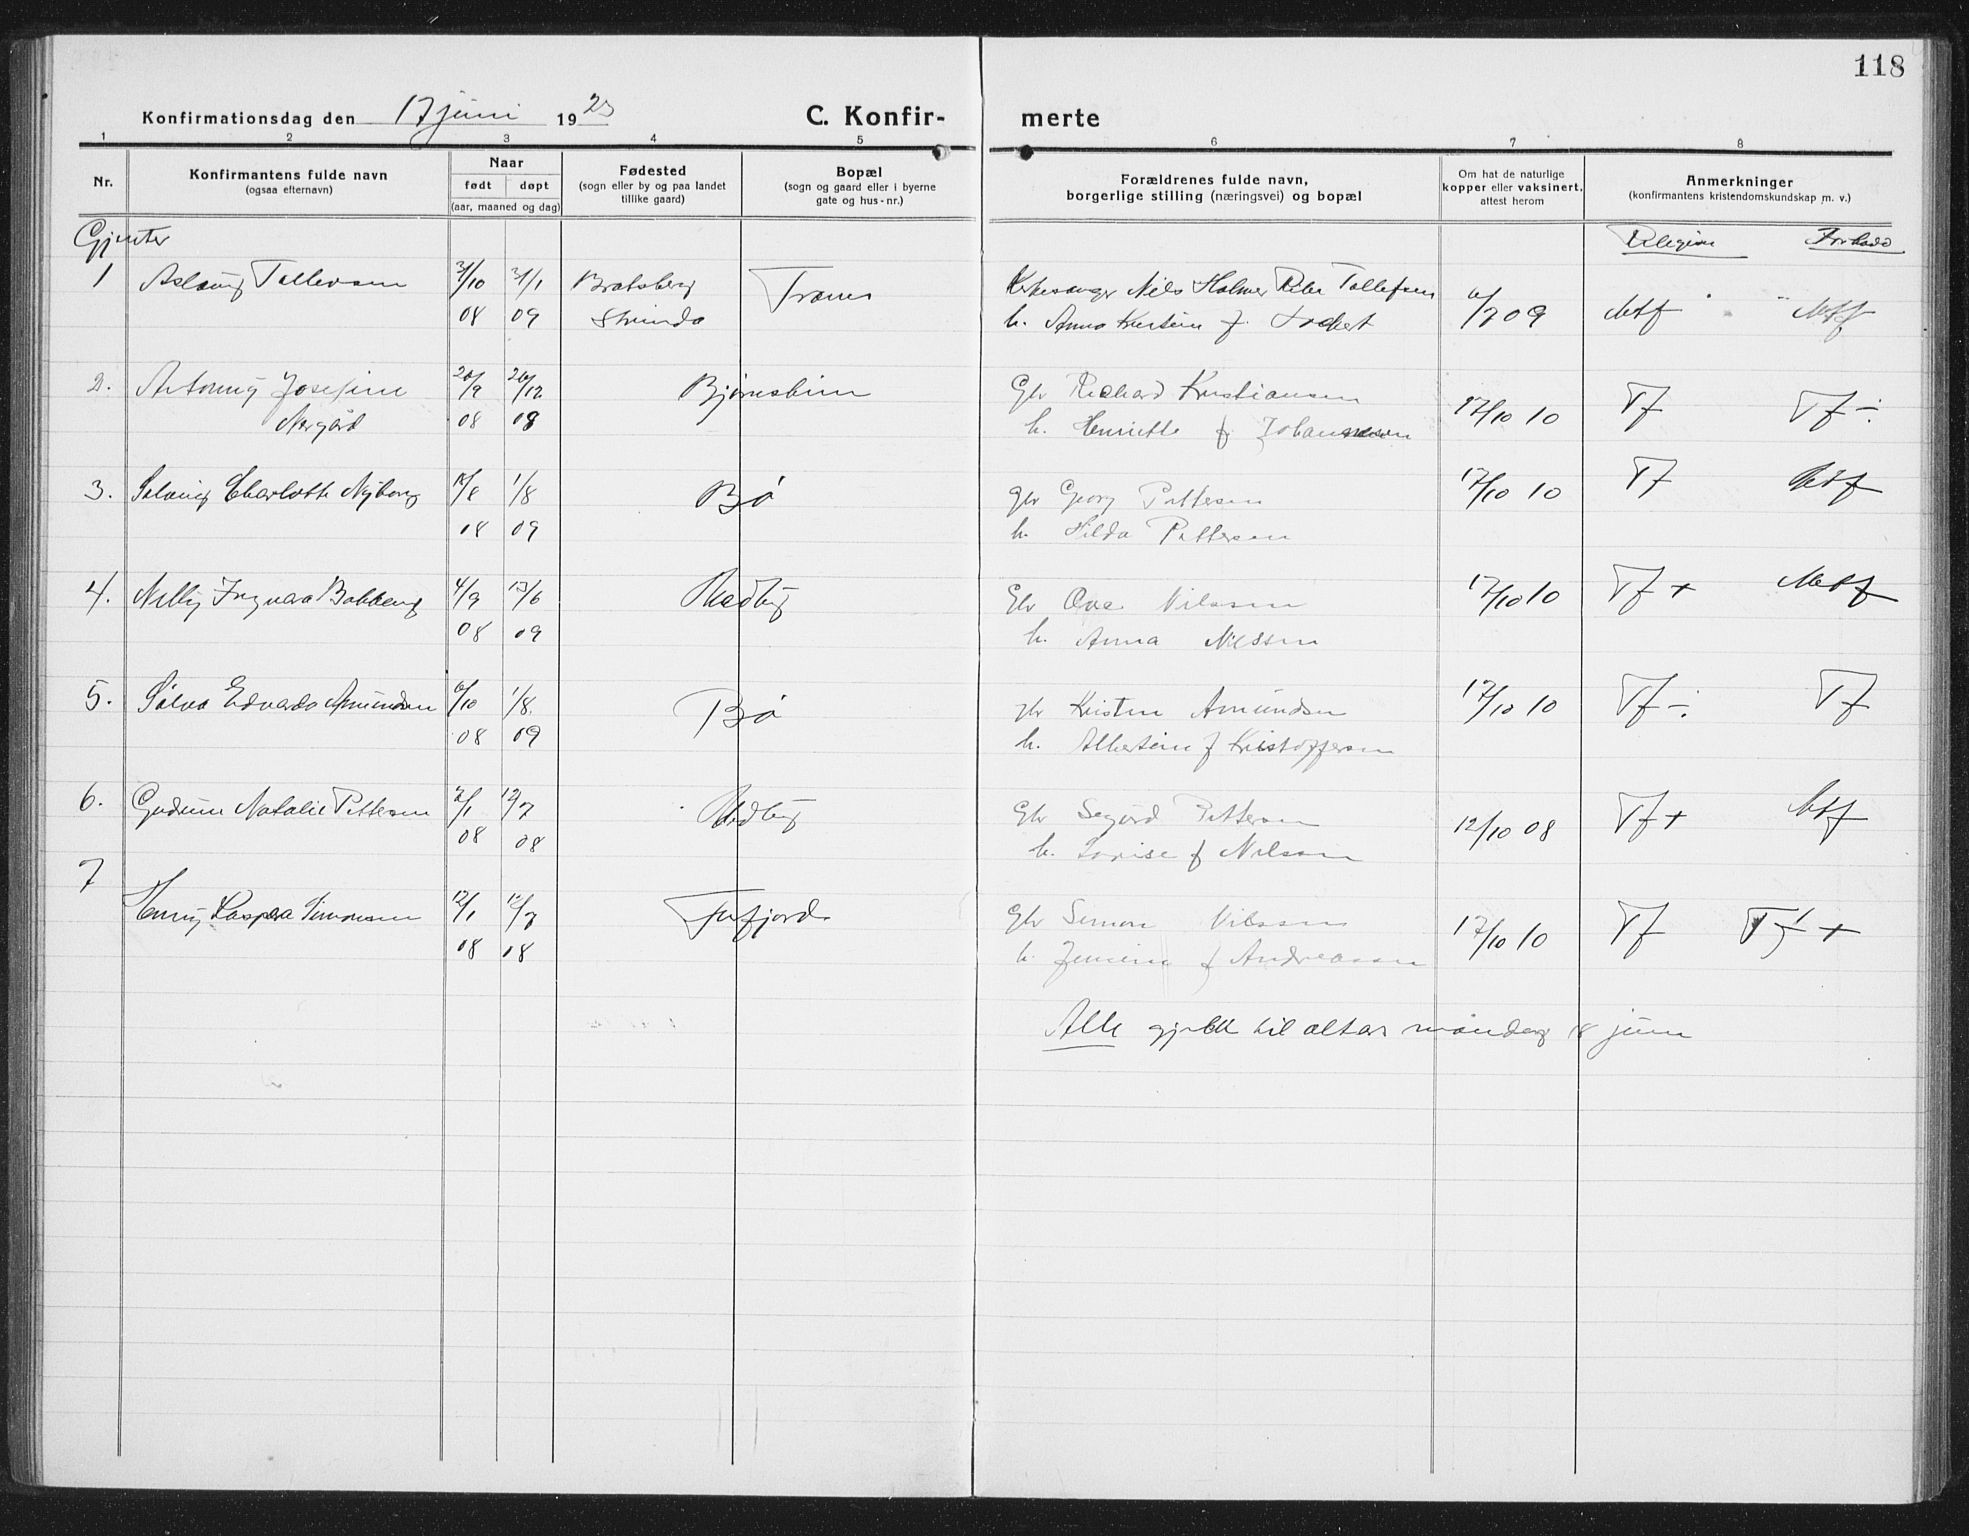 118
Konfirmationsdag den 17 juni 1923 C. Konfir- merte
1 2 3 4 5 6 7 8
Nr. Konfirmantens fulde navn (ogsaa efternavn) Naar født døpt (aar, maaned og dag) Fødested (sogn eller by og paa landet tillike gaard) Bopæl (sogn og gaard eller i byerne gate og hus-nr.) Forældrenes fulde navn, borgerlige stilling (næringsvei) og bopæl Om hat de naturlige kopper eller vaksinert, attest herom Anmerkninger (konfirmantens kristendomskundskap m. v.)
Gjenter Religion
1 Aslaug Tollevsen 31/10 31/1 Bratsberg Tranes Kirkesanger Nils Holmer Tollefsen
08 09 Strinda h. Anna f. 09 Mtf Mtf
2. Josefine 20/9 26/12 Bjørnskinn Gbr Richard Kristiansen
Nergård 08 08 h. Henriette f Johannesen 17/10 10 Tf Tf ÷
3. Solveig Charlotte Nyborg 1/8 Bø gbr Georg Pettersen 17/10 10 Tf Mtf
08 09 h. Hilda Pettersen
4. Nelly Ingvara Bakkeng 4/9 13/6 Gbr Ove Nilssen 17/10 10 Tf + Mtf
08 09 h. Anna Nilssen
5. Sølva Edvarda Amundsen 6/10 1/8 Bø gbr Kristen Amundsen 17/10 10 Tf ÷ Tf
08 09 h. Albertine f Kristoffersen
6. Gudrun Natalie Pettersen 2/1 12/7 Gbr Sigurd Pettersen Tf + Mtf
08 08 h. Lovise f Nilssen 12/10 08
7 Henny Kaspara Simonsen 12/1 12/7 Gbr Simon Nilssen 17/10 10 Tf Tf +
08 08 h. Jensine f Andreassen
Alle gjekk til altars mandag 18 juni